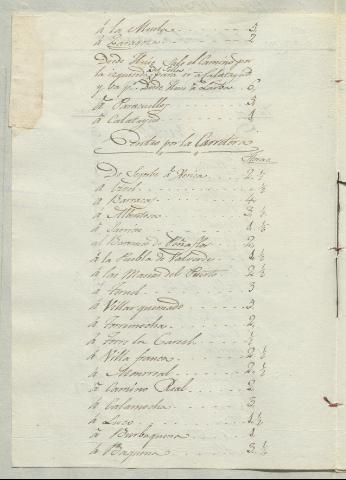 á la Muela 3
á Zaragoza 2
Desde Thuié Sale el Camino por
la izquierda para ir a Calatayud
y va p.r desde á 6
á Paracuellos 3
á Calatayud 1
por la Carretera
Horas
De á 2 1/2
á 1/2
á Barracas 4
á Albentosa 3 1/2
á Sarrión 1 1/2
al Barranco de 2
á la Puebla de Valverde 1 1/2
á las Masías del Puerto 2 1/2
á Teruel 3
á Villarquemado 3
á Torremocha 2
á Torre la Carcel 1/2
á Villa franca 2 1/2
á Monrreal 2 1/2
á Camino Real 2
á Calamocha 3
á Luco 1 1/2
á Burbaguena 1
á Baguena 3 1/2